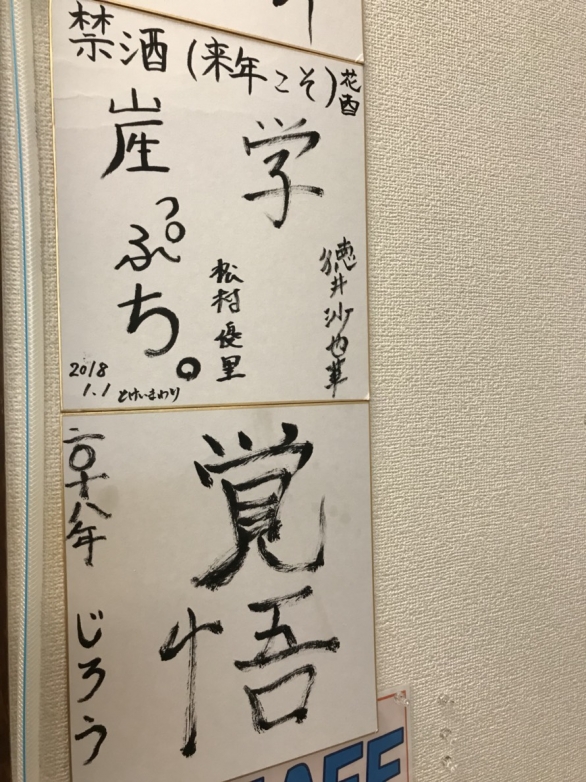 禁酒(来年こそ)
学
徳井沙也華
崖っぷち。
松村優里
2018
1.1 とけいまわり
覚悟
二〇十八年 じろう